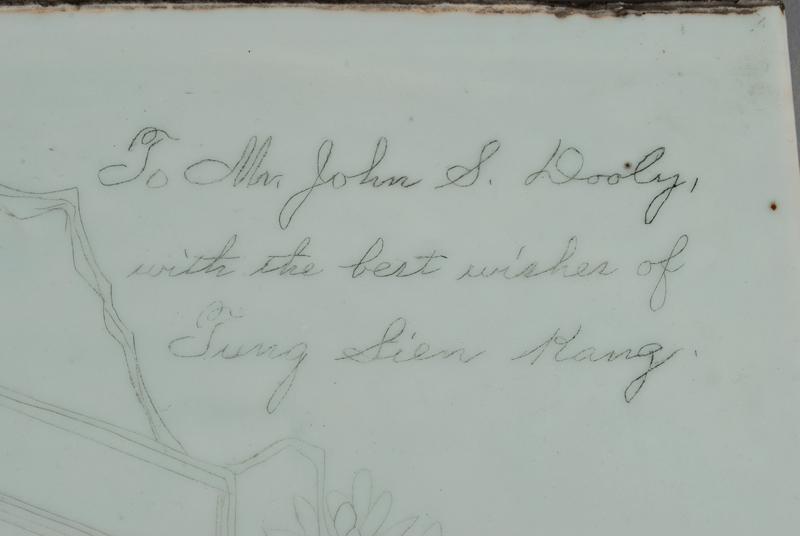 To Mr. John S. Dooly,
with the best wishes of
Tung Sien Kang.